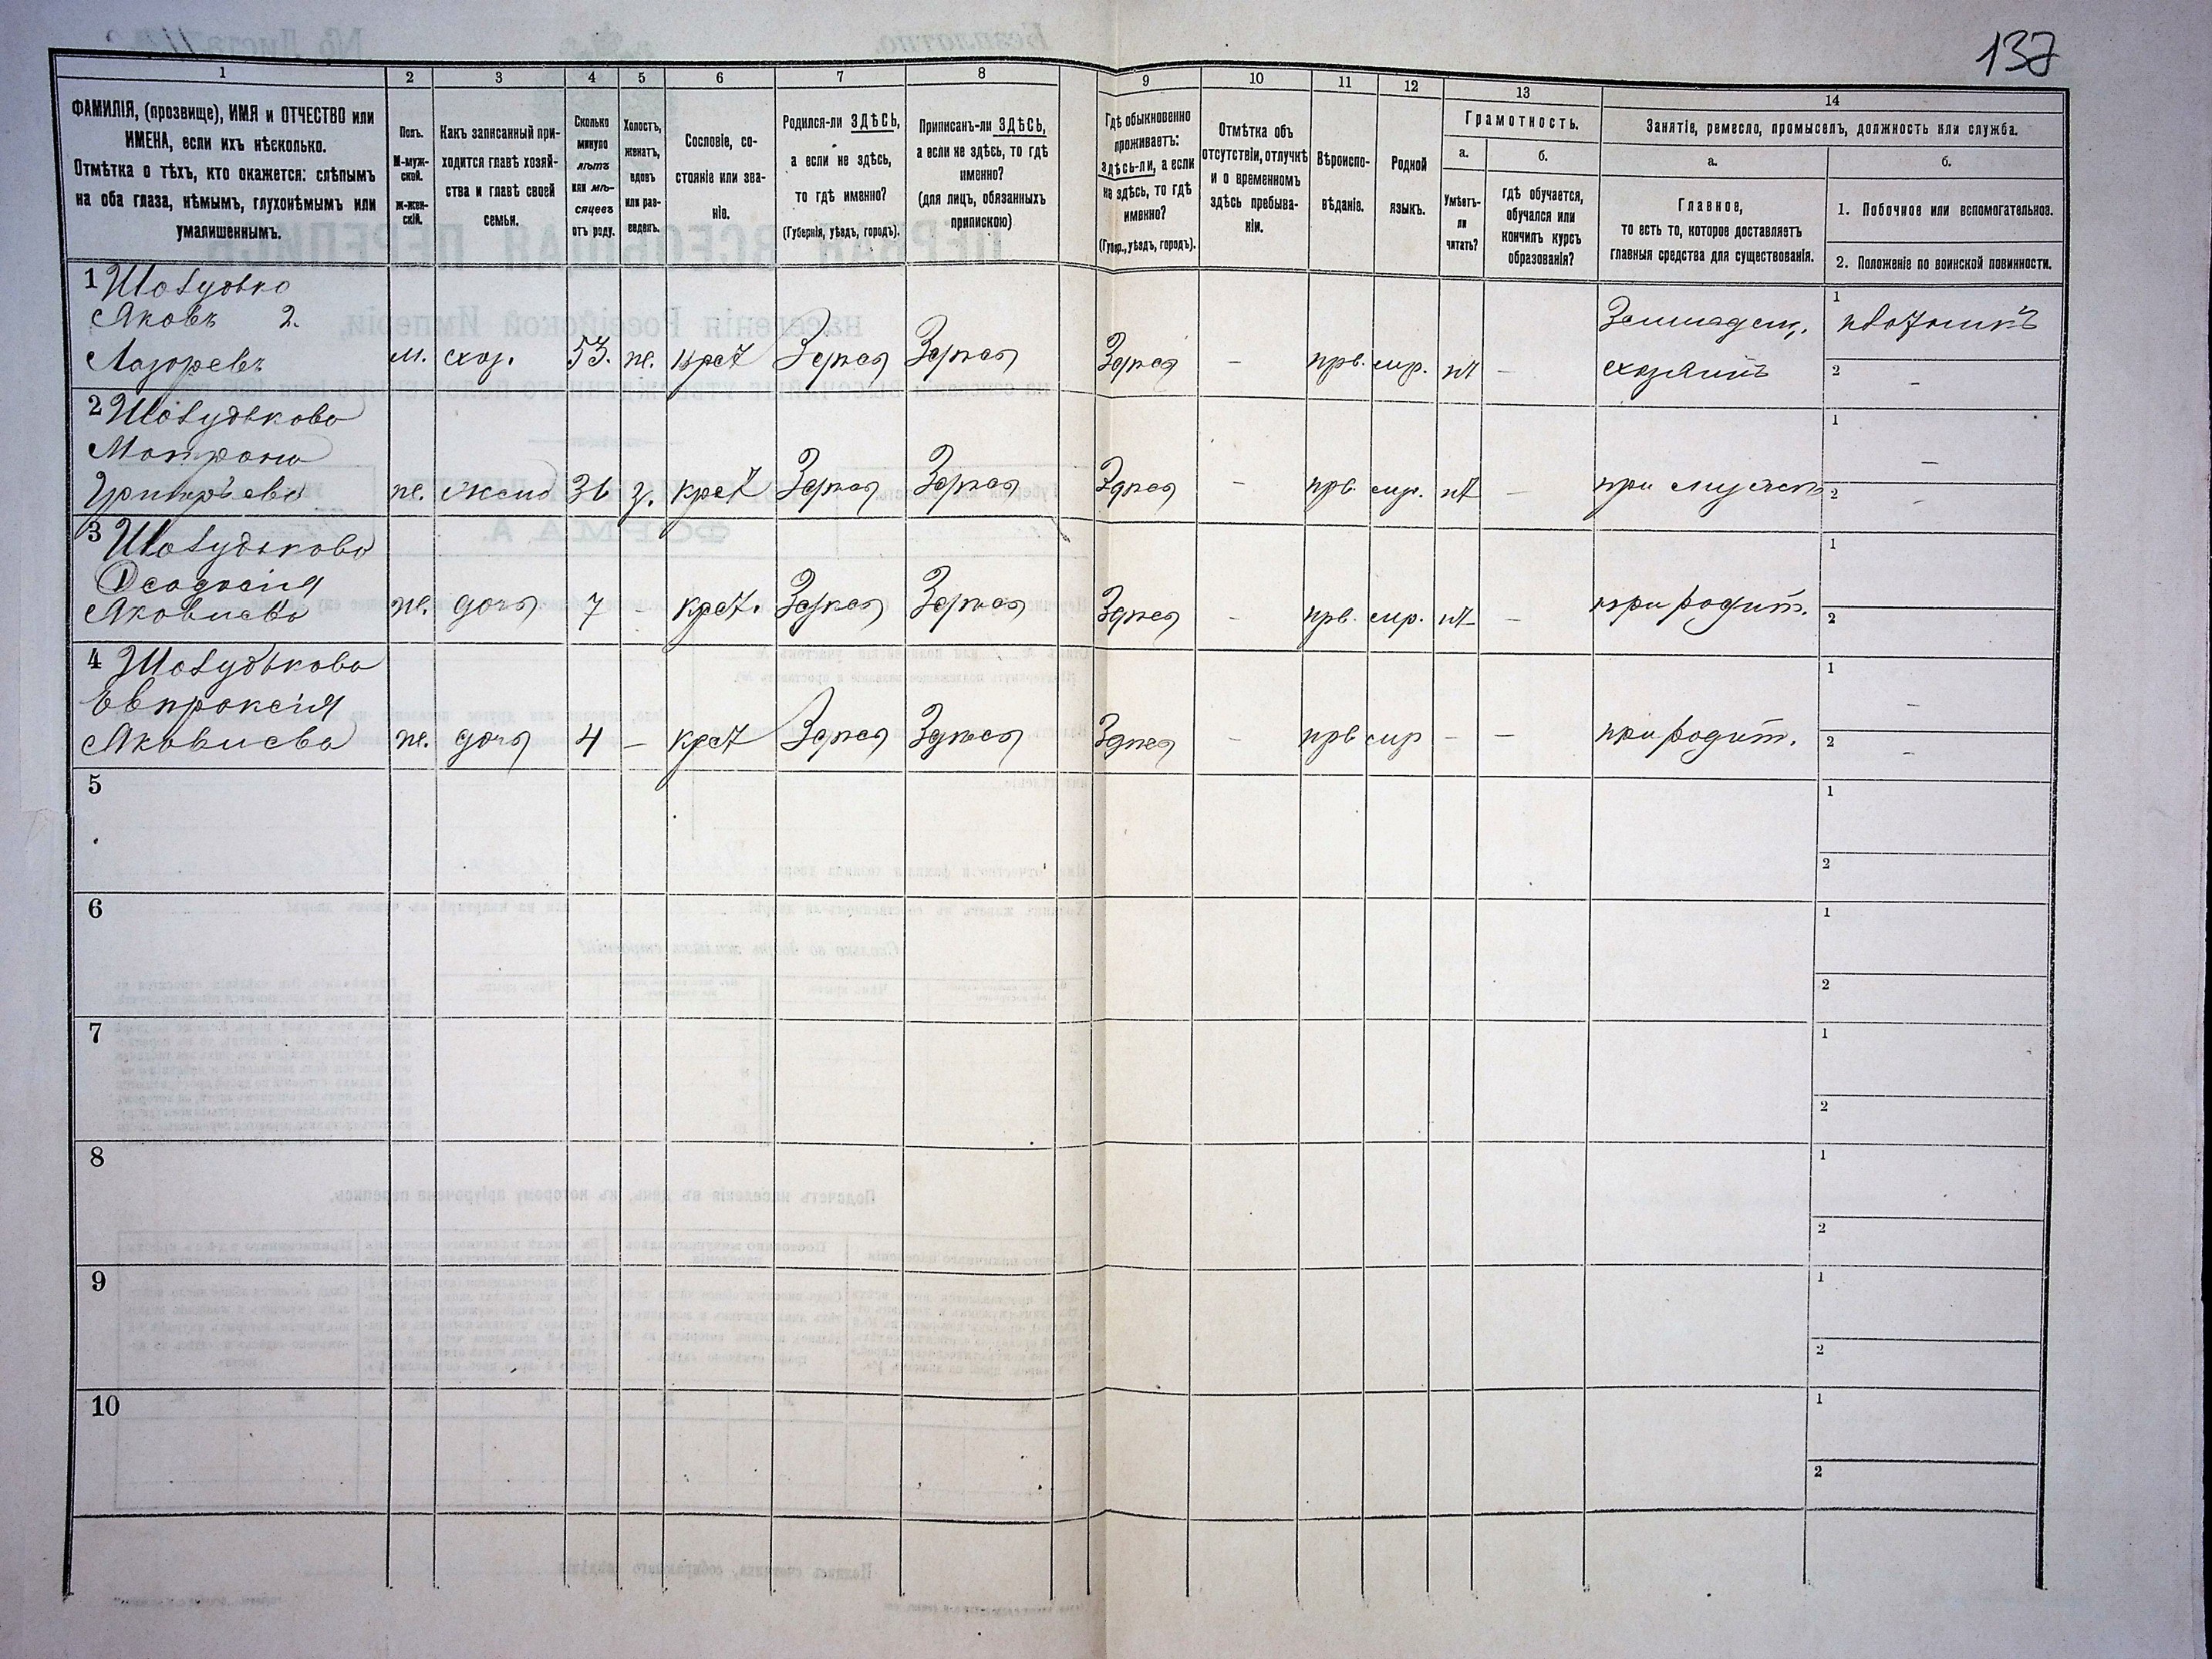 137
1 2 3 4 5 6 7 8 9 10 11 12 13 14
ФАМИЛІЯ, (прозвище), ИМЯ и ОТЧЕСТВО или
ИМЕНА, если ихъ нѣсколько.
Отмѣтка о тѣхъ, кто окажется: слѣпымъ
на оба глаза, нѣмымъ, глухонѣмымъ или
умалишеннымъ.
Полъ.
М-муж-
ской.
ж-жен-
скій.
Какъ записанный при-
ходится главѣ хозяй-
ства и главѣ своей
семьи.
Сколько
минуло
лѣтъ
или мѣ-
сяцевъ
отъ роду.
Холостъ,
женатъ,
вдовъ
или раз-
веденъ.
Сословіе, со-
стояніе или зва-
ніе.
Родился-ли ЗДѢСЬ,
а если не здѣсь,
то гдѣ именно?
(Губернія, уѣздъ, городъ).
Приписанъ-ли ЗДѢСЬ,
а если не здѣсь, то гдѣ
именно?
(для лицъ, обязанныхъ
припискою)
Гдѣ обыкновенно
проживаетъ:
здѣсь-ли, а если
не здѣсь, то гдѣ
именно?
(Губер., уѣздъ, городъ).
Отмѣтка объ
отсутствіи, отлучкѣ
и о временномъ
здѣсь пребыва-
ніи.
Вѣроиспо-
вѣданіе.
Родной
языкъ.
Грамотность.
а.
Умѣетъ-
ли
читать?
б.
Гдѣ обучается,
обучался или
кончилъ курсъ
образованія?
Занятіе, ремесло, промыселъ, должность или служба.
а.
Главное,
то есть то, которое доставляетъ
главныя средства для существованія.
б.
1. Побочное или вспомогательное.
2. Положеніе по воинской повинности.
1
Яковъ 2.
Лазоревъ м. хоз. 53. же. крест Здѣсь Здѣсь Здѣсь – прв. мр. нт – Земледѣл. хозяинъ 1 плотникъ 2 –
2
Матрона
жена з. крест Здѣсь Здѣсь Здѣсь – прв. мр. нт – при мужѣ 1 – 2 –
3
Ѳеодосія
Яковлева же. дочь 7 – крест. Здѣсь Здѣсь Здѣсь – прв. мр. нт – при родит. 1 2
4
Евпраксія
Яковлева же. дочь 4 – крест Здѣсь Здѣсь Здѣсь – прв мр – – при родит. 1 – 2 –
5 1 2
6 1 2
7 1 2
8 1 2
9 1 2
10 1 2